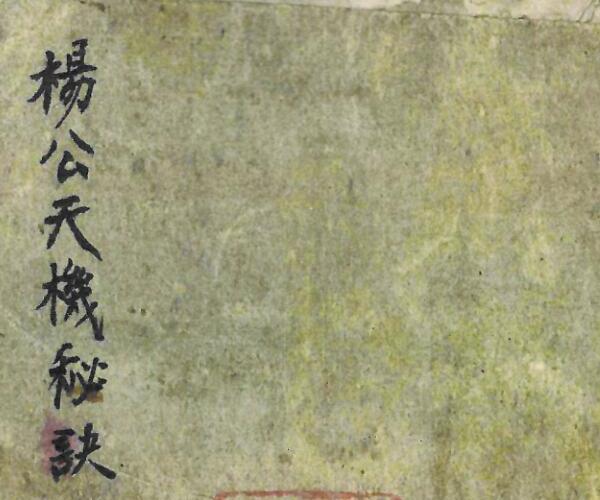 楊公天機秘訣